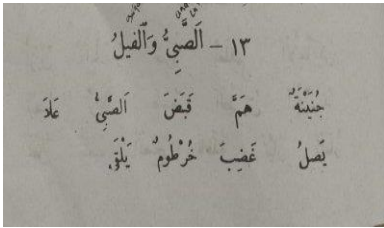 ١٣ – اَلصَّبِىُّ وَالْفِيلُ
جُنَيْنَةٌ هَمَّ قَبَضَ اَلصَّبِىُّ عَادَ
بَصَلٌ غَضِبَ خُرْطُومٌ يَلْقَى